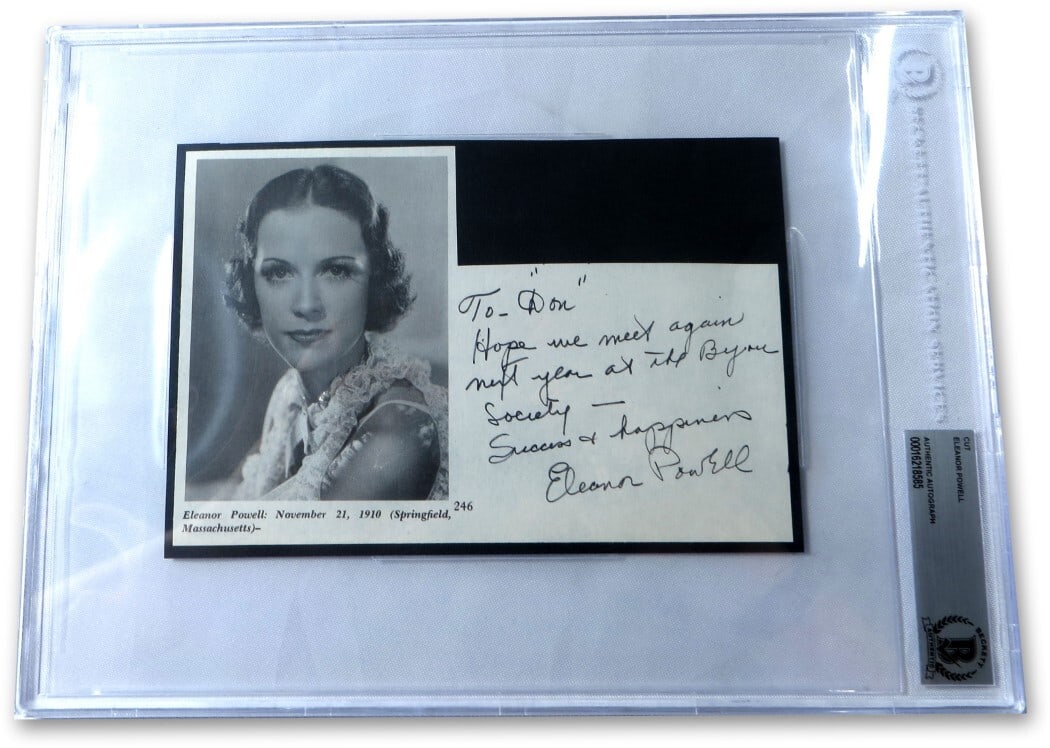 To - "Don"
Hope we meet again
next year at the Byron
Society —
Success & happiness
Eleanor Powell
Eleanor Powell: November 21, 1910 (Springfield,
Massachusetts)—
246
BECKETT AUTHENTICATION SERVICES
CUT
ELEANOR POWELL
AUTHENTIC AUTOGRAPH
00016218585
BECKETT
B
AUTHENTIC